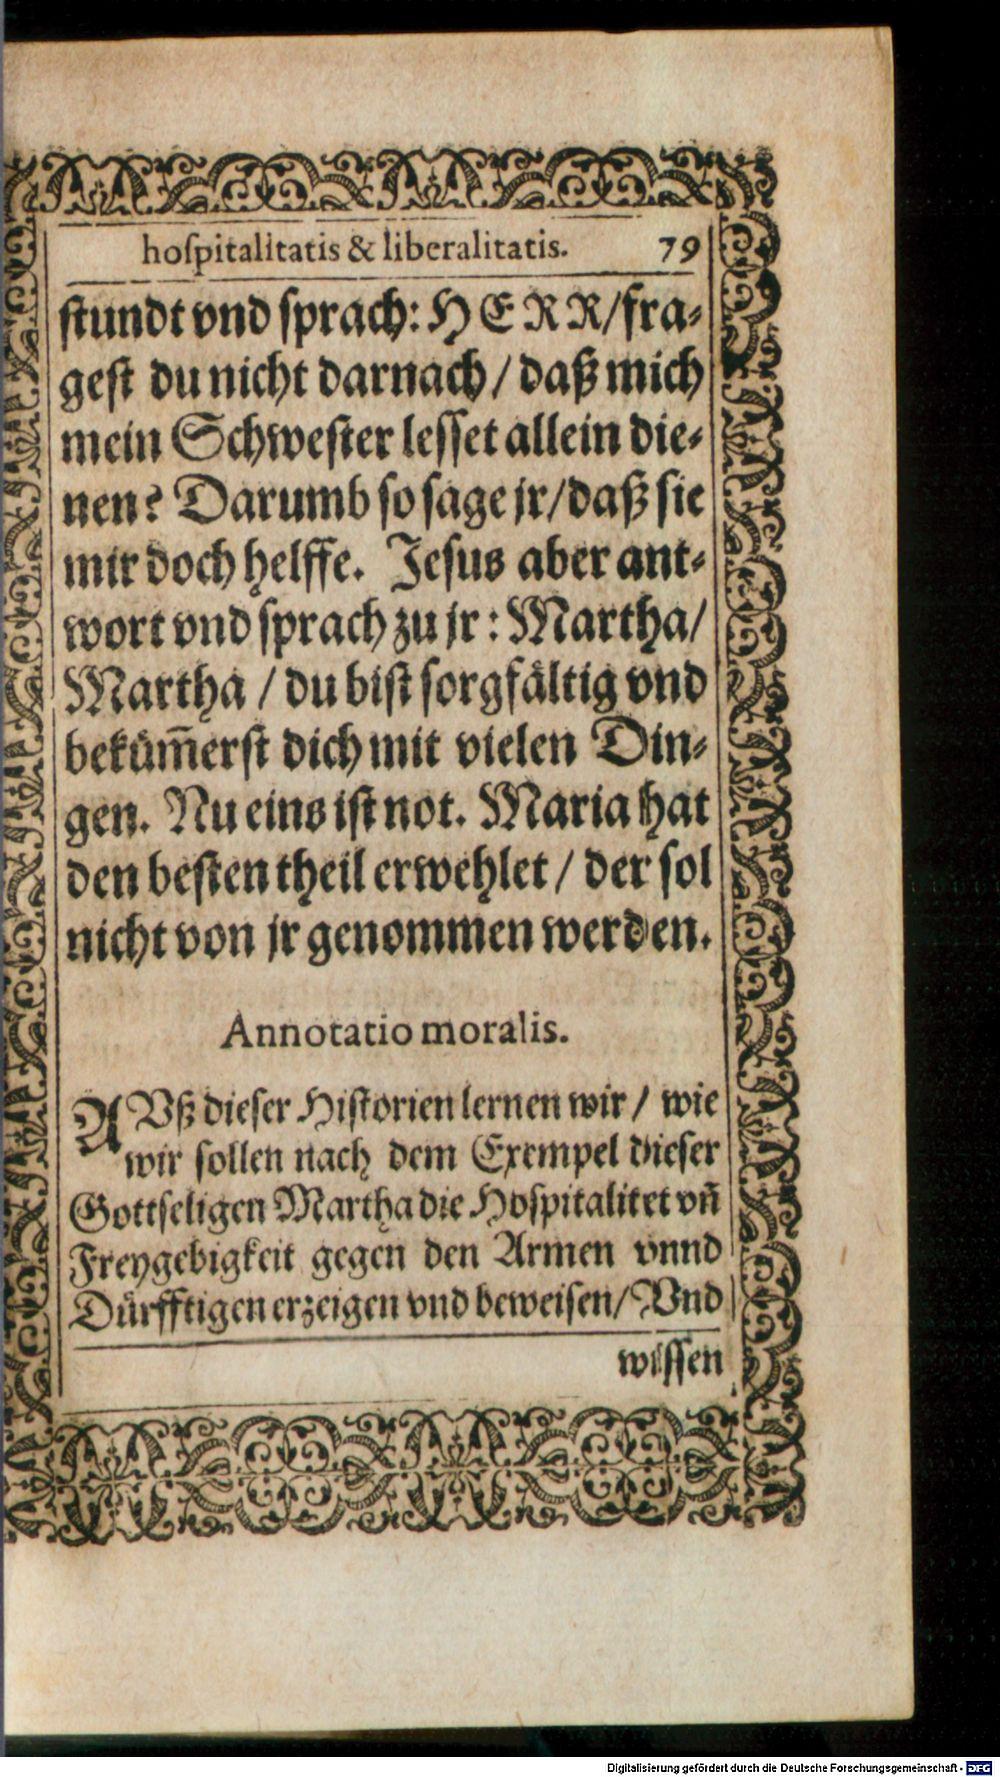 hoſpitalitatis & liberalitatis. 79
ſtundt vnd ſprach: HERR/fra-
geſt du nicht darnach / daß mich
mein Schweſter leſſet allein die-
nen? Darumb ſo ſage jr/daß ſie
mir doch helffe. Jeſus aber ant-
wort vnd ſprach zu jr: Martha/
Martha / du biſt ſorgfältig vnd
beküm̃erſt dich mit vielen Din-
gen. Nu eins iſt not. Maria hat
den beſten theil erwehlet / der ſol
nicht von jr genommen werden.
Annotatio moralis.
AVß dieſer Hiſtorien lernen wir / wie
wir ſollen nach dem Exempel dieſer
Gottſeligen Martha die Hoſpitalitet vn̄
Freygebigkeit gegen den Armen vnnd
Dürfftigen erzeigen vnd beweiſen/ Vnd
wiſſen
Digitalisierung gefördert durch die Deutsche Forschungsgemeinschaft - DFG